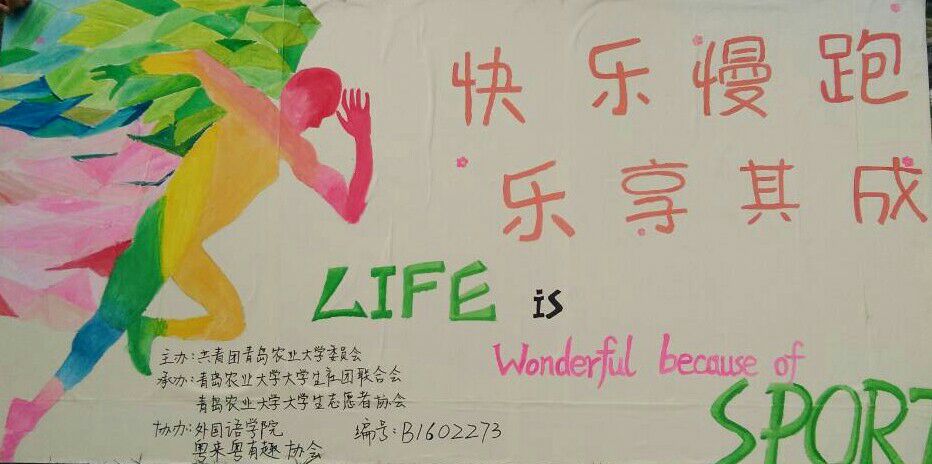 快乐慢跑
乐享其成
LIFE is
Wonderful because of
SPORT
主办:共青团青岛农业大学委员会
承办:青岛农业大学大学生社团联合会
青岛农业大学大学生志愿者协会
协办:外国语学院
粤来粤有趣协会
编号:B1602273